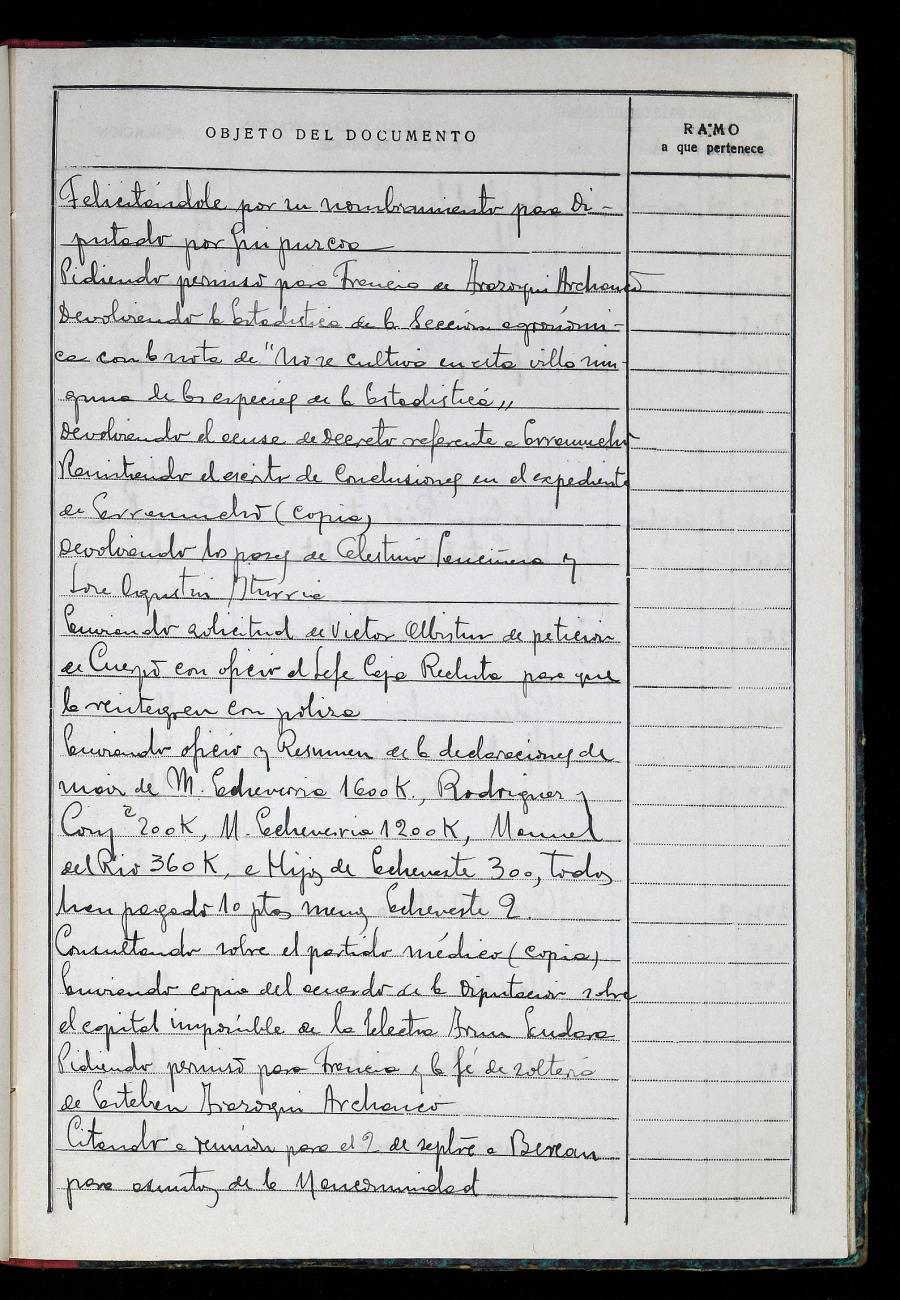 OBJETO DEL DOCUMENTO
RAMO
a que pertenece
Felicitándole por su nombramiento para Di-
putado por Guipuzcoa
Pidiendo permiso para Francia de Arazoqui Archanco
Devolviendo la Estadistica de la Sección agronómi-
ca con la nota de "No se cultiva en esta villa nin-
guna de las especies de la Estadistica"
Devolviendo el acuse de Decreto referente a Erramuncho
Remitiendo el escrito de Conclusiones en el expediente
de Erramuncho (copia)
Devolviendo los pases de Celestino y
Jose Agustin Iturria
Enviando solicitud de Victor Albistur de peticion
de Cuerpo con oficio al Jefe Caja Recluta para que
la reintegren con poliza
Enviando oficio y Resumen de la declaraciones de
maiz de M. Echeverria 1600 K., Rodriguez y
Comp.ª 200 K, M. Echeverria 1200 K, Manuel
del Rio 360 K, e Hijos de Echeveste 300, todos
han pagado 10 ptas menos Echeveste 2.
Consultando sobre el partido médico (copia)
Enviando copia del acuerdo de la Diputacion sobre
el capital imponible de la Electra Irun Endara
Pidiendo permiso para Francia y la fé de solteria
de Esteban Arazoqui Archanco
Citando a reunión para el 2 de septbre a Beréau
para asuntos de la Mancomunidad